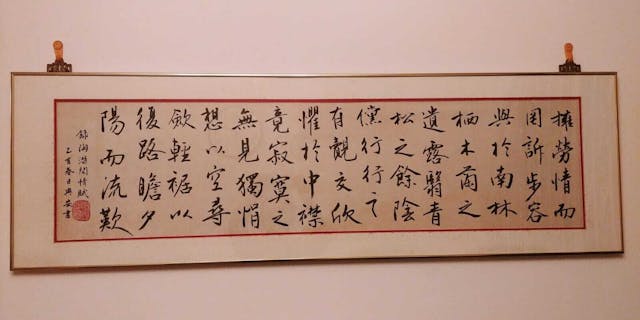 擁勞情而
罔訴步容
與於南林
栖木蘭之
遺露翳青
松之餘陰
儻行行之
有覿交欣
懼於中襟
竟寂寞之
無見獨悁
想以空尋
歛輕裾以
復路瞻夕
陽而流歎
錄陶潛閑情賦
乙亥春日興安書